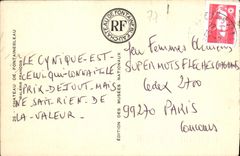 CHATEAU DE FONTAINEBLEAU
RF
77
LE CYNIQUE EST
CELUI QUI CONNAIT LE
PRIX DE TOUT MAIS
NE SAIT RIEN DE
LA VALEUR.
EDITION DES MUSÉES NATIONAUX
Jeu Femmes
SUPER MOTS FLECHES
Cedex 2700
99270 PARIS
Concours